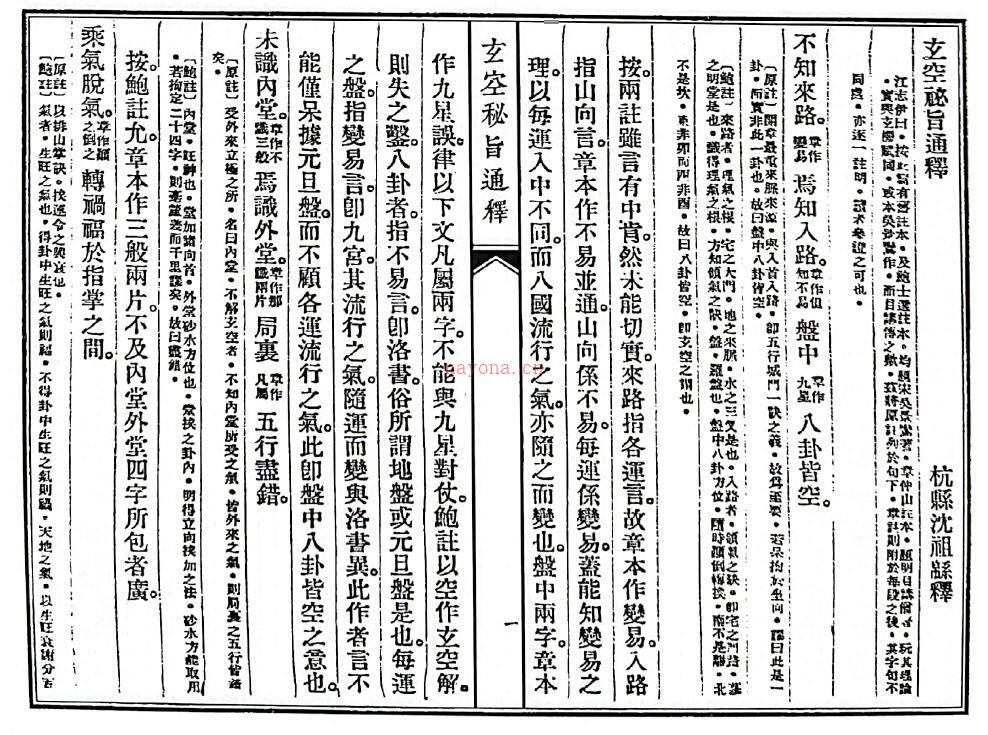 玄空祕旨通釋
杭縣沈祖緜釋
江志伊曰。按此篇有舊註本。及鮑士選註本。均題宋吳景鸞著。章仲山註本。題明目講僧著。玩其理論
實與玄機賦同。或本吳公舊作。而目講傳之歟。茲將原註列於句下。章註則附於每段之後。其字句不
同處。亦逐一註明。讀者參證之可也。
不知來路。章作變易 焉知入路。章作但知不易 盤中章作九星 八卦皆空。
〔原註〕開章最重來脈來源。與入首入路。即五行城門一訣之義。故爲至要。若呆拘於坐向。羅曰此是一
卦。而實非此一卦也。故曰盤中八卦皆空。
〔鮑註〕來路者。理氣之根。宅之大門。地之來脈。水之三叉是也。入路者。領氣之訣。即宅之門路。墓
之明堂是也。識得理氣之根。方知領氣之訣。盤。羅盤也。盤中八卦方位。隨時顛倒轉換。南不是離。北
不是坎。東非卯而西非酉。故曰八卦皆空。即玄空之謂也。
按。兩註雖言有中肯。然未能切實。來路指各運言。故章本作變易。入路
指山向言。章本作不易並通。山向係不易。每運係變易。蓋能知變易之
理。以每運入中不同。而八國流行之氣。亦隨之而變也。盤中兩字。章本
玄空秘旨通釋
一
作九星。誤。律以下文凡屬兩字。不能與九星對仗。鮑註以空作玄空解。
則失之鑿。八卦者。指不易言。即洛書。俗所謂地盤或元旦盤是也。每運
之盤。指變易言。即九宮。其流行之氣。隨運而變。與洛書異。此作者言不
能僅呆據元旦盤。而不顧各運流行之氣。此即盤中八卦皆空之意也。
未識內堂。章作不識三般 焉識外堂。章作那識兩片 局裏章作凡屬 五行盡錯。
〔原註〕受外來立極之所。名曰內堂。不解玄空者。不知內堂所受之氣。皆外來之氣。則局裏之五行皆錯
矣。
〔鮑註〕內堂。旺神也。堂加諸向首。外堂砂水方位也。堂挨之卦內。明得立向挨加之法。砂水方能取用
。若拘定二十四字。則毫釐差而千里謬矣。故曰盡錯。
按。鮑註允。章本作三般兩片。不及內堂外堂四字所包者廣。
乘氣脫氣。章作顛之倒之 轉禍福於指掌之間。
〔原註〕以排山掌訣。找運令之興衰也。
〔鮑註〕氣者。生旺之氣也。得卦中生旺之氣則福。不得卦中生旺之氣則禍。天地之氣。以生旺衰謝分吉
nayona.cn